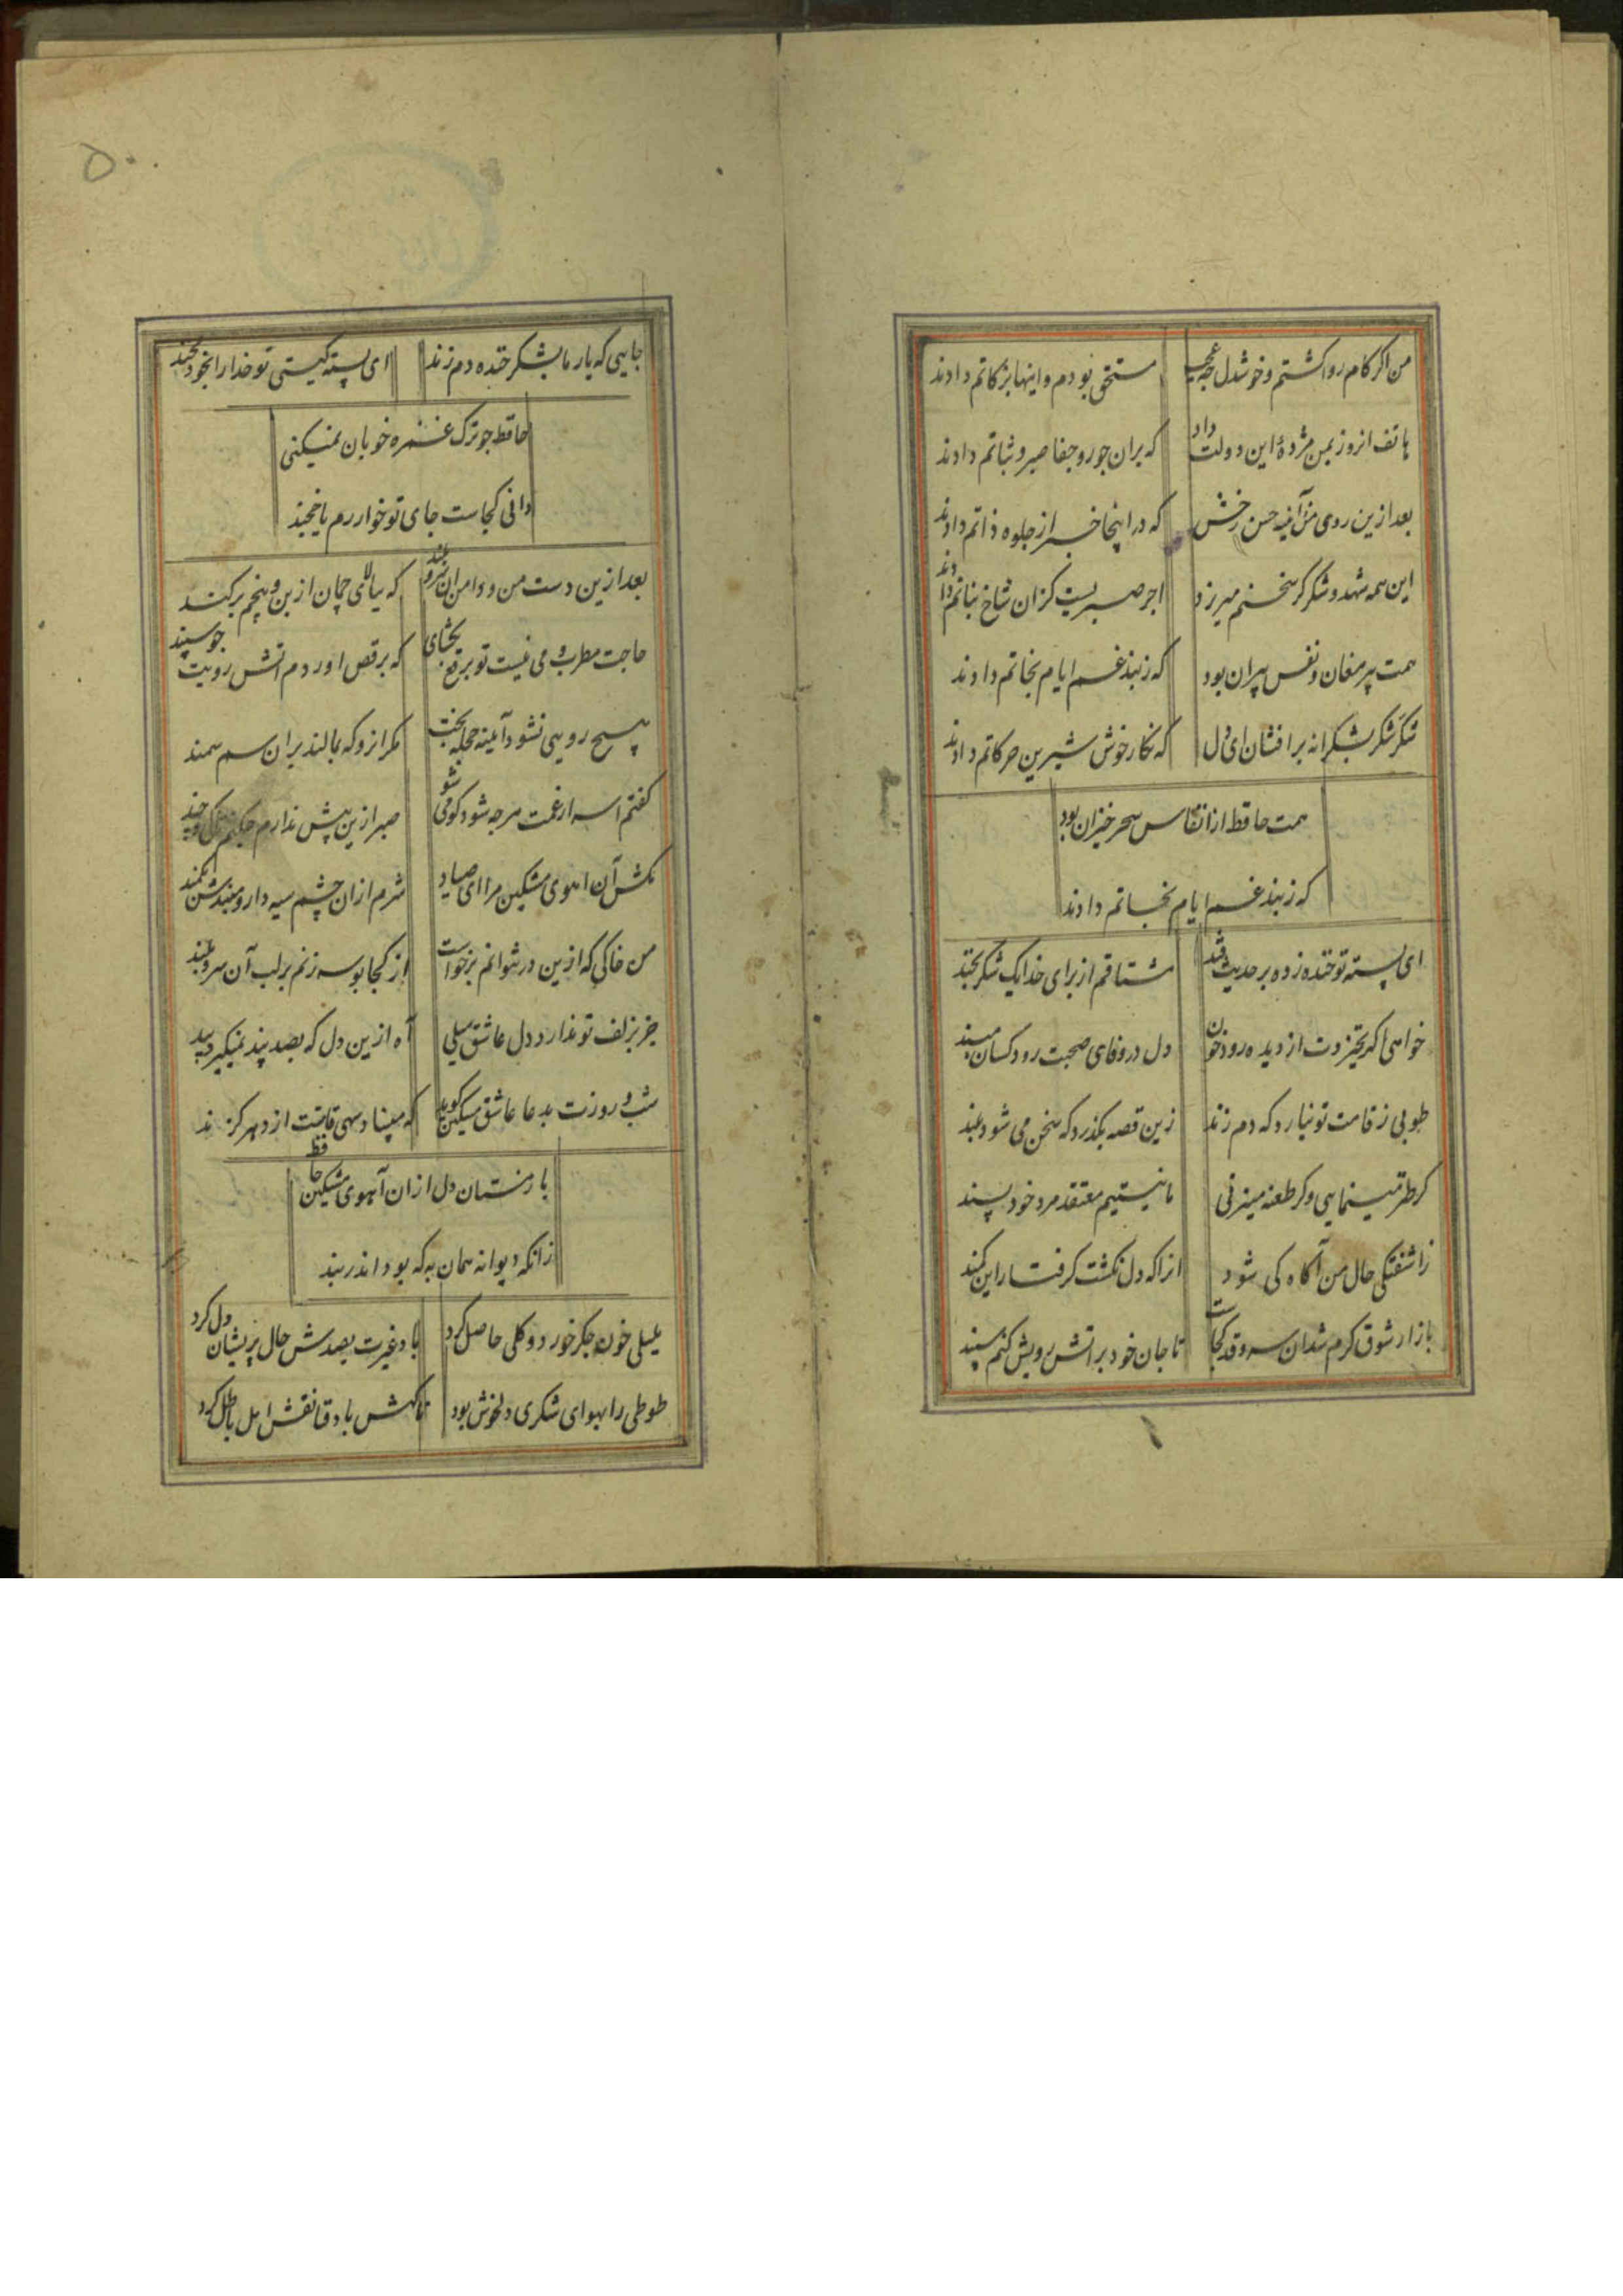 من اگر کام روا گشتم و خوشدل چه عجب
مستحق بودم و اینها بزکاتم دادند
هاتف انروز بمن مژدهٔ این دولت داد
که بران جور و جفا صبر و ثباتم دادند
بعد ازین روی من و آینه حسن رخش
که در اینجا خبر از جلوه ذاتم دادند
این همه شهد و شکر کز سخنم میریزد
اجر صبریست کزان شاخ نباتم دادند
همت پیر مغان و نفس پیران بود
که ز بند غم ایام نجاتم دادند
شکر شکر بشکرانه برافشان ای دل
که نکار خوش شیرین حرکاتم دادند
همت حافظ از انفاس سحر خیزان بود
که ز بند غم ایام نجاتم دادند
ای پسته تو خنده زده بر حدیث قند
مشتاقم از برای خدا یک شکر بخند
خواهی اکر نخیزدت از دیده رود خون
دل در وفای صحبت رود کسان مبند
طوبی ز قامت تو نیارد که دم زند
زین قصه بکذرد که سخن می شود بلند
کر طره مینمایی و کر طعنه میزنی
ما نیستیم معتقد مرد خود پسند
ز اشفتکی حال من آکاه کی شود
انرا که دل نکشت کرفتار این کمند
بازار شوق کرم شد ان سرو قد کجاست
تا جان خود بر اتش رویش کنم سپند
جایی که یار ما بشکر خنده دم زند
ای پسته کیستی تو خدا را بخود مخند
حافظ چو ترک غمزه خوبان نمیکنی
دانی کجاست جای تو خوارزم یا خجند
بعد ازین دست من و دامن ان سرو بلند
که ببالای چمان از بن و بیخم برکند
حاجت مطرب و می نیست تو برقع بکشای
که برقص اوردم اتش رویت چو سپند
هیچ رویی نشود آینه حجله بخت
مکر انرو که بمالند بران سم سمند
کفتم اسرار غمت هرچه شود کو می شو
صبر ازین پیش ندارم چکنم تا کی و چند
مکش آن اهوی مشکین مرا ای صیاد
شرم از ان چشم سیه دار و مبندش بکمند
من خاکی که ازین در نتوانم برخواست
از کجا بوسه زنم بر لب آن سرو بلند
جز بزلف تو ندارد دل عاشق میلی
آه ازین دل که بصد پند نمیکیرد پند
شب و روزت بدعا عاشق مسکین کوید
که مبیناد سهی قامتت از دهر کزند
باز مستان دل ازان آهوی مشکین حافظ
زانکه دیوانه همان به که بود اندر بند
بلبلی خون جکر خورد و کلی حاصل کرد
باد غیرت بصدش حال پریشان دل کرد
طوطی را بهوای شکری دلخوش بود
ناکهش باد فنا نقش امل باطل کرد